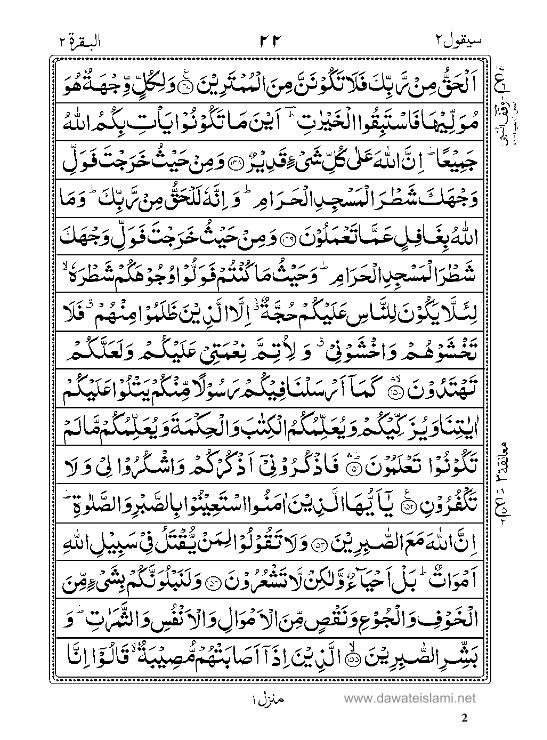 سيقول ٢
٢٢
البقرة ٢
اَلْحَقُّ مِنْ رَّبِّكَ فَلَا تَكُوْنَنَّ مِنَ الْمُمْتَرِيْنَ ﴿۱۴۷﴾ وَلِكُلٍّ وِّجْهَةٌ هُوَ
مُوَلِّيْهَا فَاسْتَبِقُوا الْخَيْرٰتِ ؕ اَيْنَ مَا تَكُوْنُوْا يَاْتِ بِكُمُ اللّٰهُ
جَمِيْعًا ؕ اِنَّ اللّٰهَ عَلٰى كُلِّ شَیْءٍ قَدِيْرٌ ﴿۱۴۸﴾ وَمِنْ حَيْثُ خَرَجْتَ فَوَلِّ
وَجْهَكَ شَطْرَ الْمَسْجِدِ الْحَرَامِ ؕ وَاِنَّهٗ لَلْحَقُّ مِنْ رَّبِّكَ ؕ وَمَا
اللّٰهُ بِغَافِلٍ عَمَّا تَعْمَلُوْنَ ﴿۱۴۹﴾ وَمِنْ حَيْثُ خَرَجْتَ فَوَلِّ وَجْهَكَ
شَطْرَ الْمَسْجِدِ الْحَرَامِ ؕ وَحَيْثُ مَا كُنْتُمْ فَوَلُّوْا وُجُوْهَكُمْ شَطْرَهٗ ۙ
لِئَلَّا يَكُوْنَ لِلنَّاسِ عَلَيْكُمْ حُجَّةٌ ٭ۙ اِلَّا الَّذِيْنَ ظَلَمُوْا مِنْهُمْ ۗ فَلَا
تَخْشَوْهُمْ وَاخْشَوْنِیْ ۗ وَلِاُتِمَّ نِعْمَتِیْ عَلَيْكُمْ وَلَعَلَّكُمْ
تَهْتَدُوْنَ ﴿۱۵۰﴾ۙ كَمَاۤ اَرْسَلْنَا فِيْكُمْ رَسُوْلًا مِّنْكُمْ يَتْلُوْا عَلَيْكُمْ
اٰيٰتِنَا وَيُزَكِّيْكُمْ وَيُعَلِّمُكُمُ الْكِتٰبَ وَالْحِكْمَةَ وَيُعَلِّمُكُمْ مَّا لَمْ
تَكُوْنُوْا تَعْلَمُوْنَ ﴿۱۵۱﴾ؕ فَاذْكُرُوْنِیْۤ اَذْكُرْكُمْ وَاشْكُرُوْا لِیْ وَلَا
تَكْفُرُوْنِ ﴿۱۵۲﴾ يٰۤاَيُّهَا الَّذِيْنَ اٰمَنُوا اسْتَعِيْنُوْا بِالصَّبْرِ وَالصَّلٰوةِ ؕ
اِنَّ اللّٰهَ مَعَ الصّٰبِرِيْنَ ﴿۱۵۳﴾ وَلَا تَقُوْلُوْا لِمَنْ يُّقْتَلُ فِیْ سَبِيْلِ اللّٰهِ
اَمْوَاتٌ ؕ بَلْ اَحْيَآءٌ وَّلٰكِنْ لَّا تَشْعُرُوْنَ ﴿۱۵۴﴾ وَلَنَبْلُوَنَّكُمْ بِشَیْءٍ مِّنَ
الْخَوْفِ وَالْجُوْعِ وَنَقْصٍ مِّنَ الْاَمْوَالِ وَالْاَنْفُسِ وَالثَّمَرٰتِ ؕ وَ
بَشِّرِ الصّٰبِرِيْنَ ﴿۱۵۵﴾ۙ الَّذِيْنَ اِذَاۤ اَصَابَتْهُمْ مُّصِيْبَةٌ ۙ قَالُوْۤا اِنَّا
معانقة ٢
منزل ١
www.dawateislami.net
2